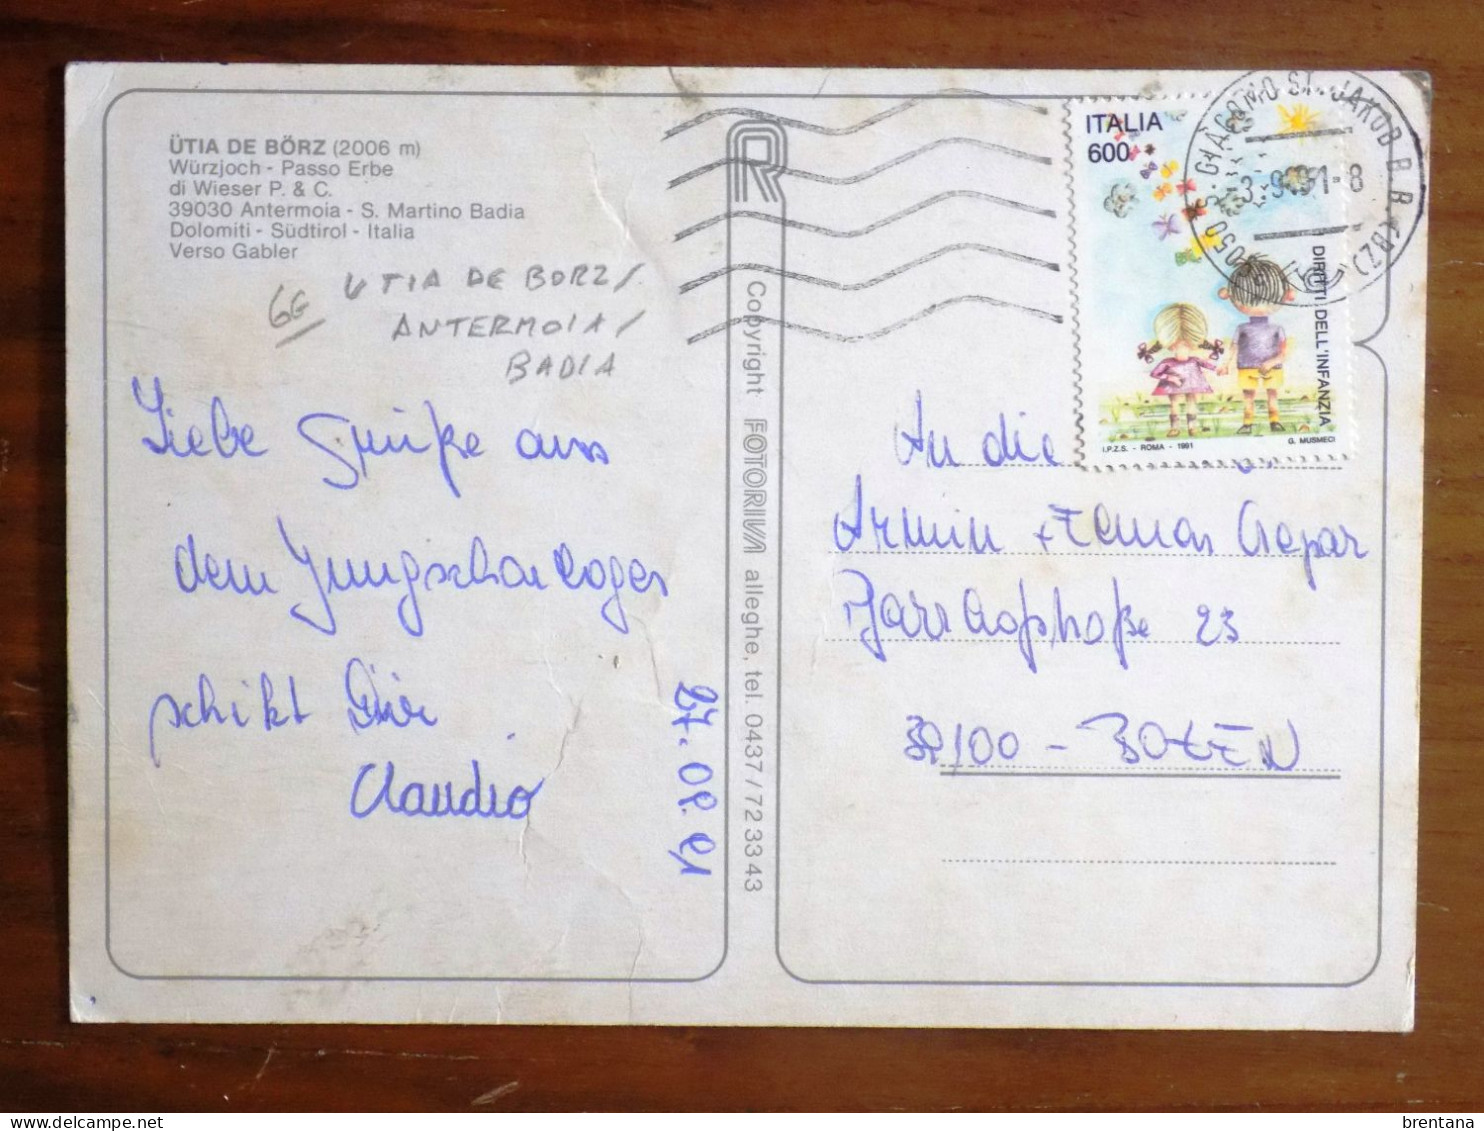 ÜTIA DE BÖRZ (2006 m)
Würzjoch - Passo Erbe
di Wieser P. & C.
39030 Antermoia - S. Martino Badia
Dolomiti - Südtirol - Italia
Verso Gabler
UTIA DE BORZ/
ANTERMOIA/
BADIA
Liebe Grüße aus
dem Jungscharlager
schikt Dir
Claudio
27.08.91
Copyright FOTORIVA alleghe, tel. 0437/723343
R
ITALIA
600
DIRITTI DELL'INFANZIA
I.P.Z.S. - ROMA - 1991
G. MUSMECI
S. GIACOMO ST. JAKOB B.B. (BZ)
An die
Armin + Elmar Gaspar
Pfarrhofstraße 23
39100 - BOZEN
brentana